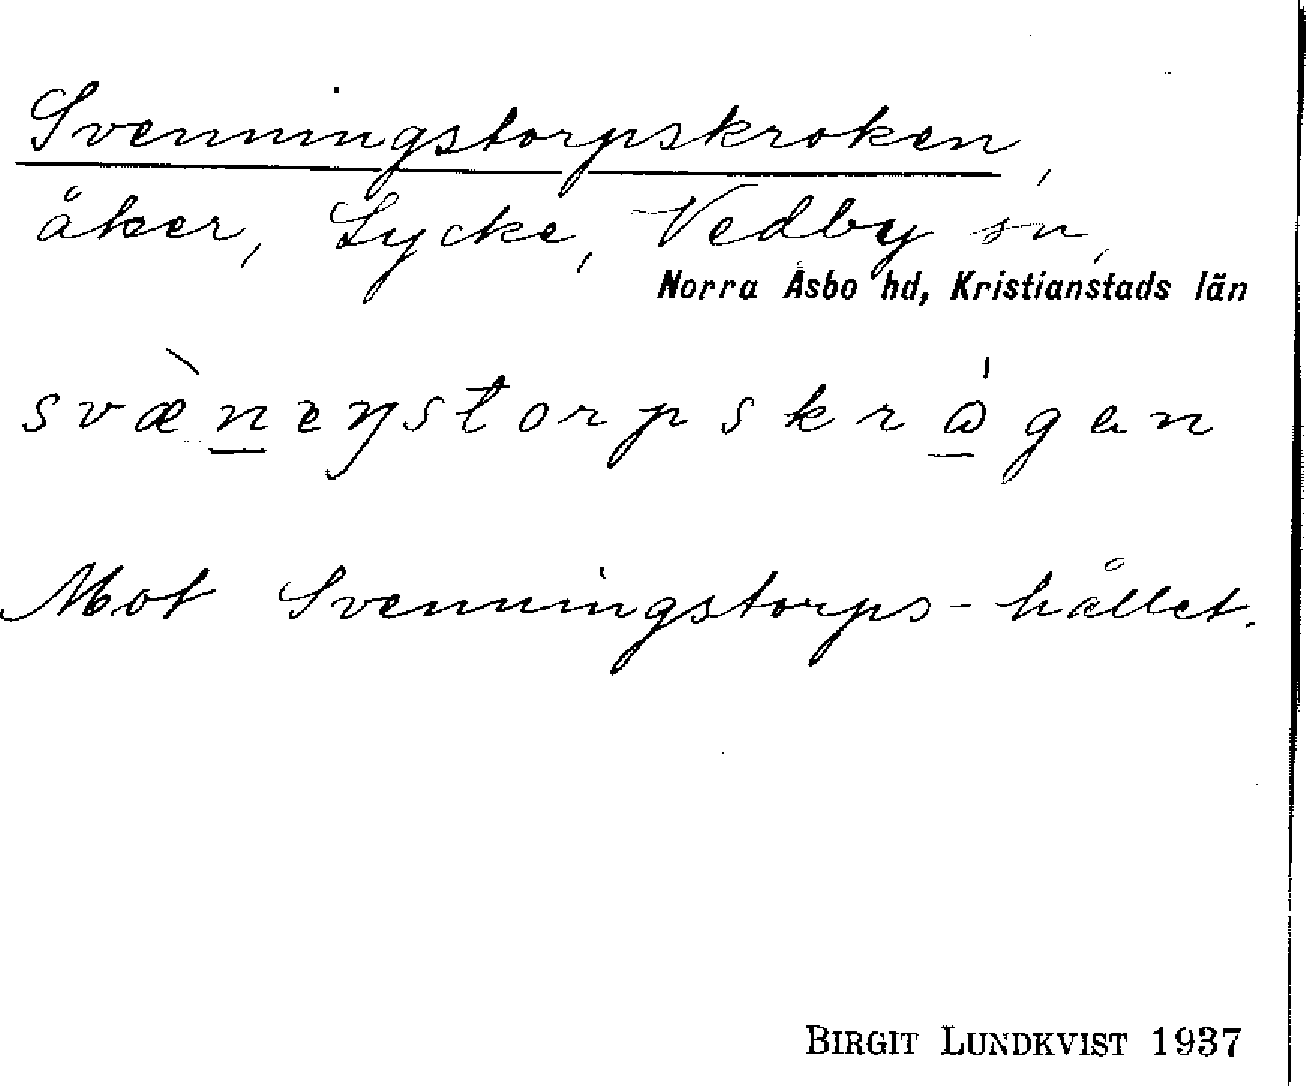 Svenningstorpskroken,
åker, Lycke, Vedby sn,
Norra Åsbo hd, Kristianstads län
svæ̀n̲eŋstorpskrǻ̲gen
Mot Svenningstorps-hållet.
BIRGIT LUNDKVIST 1937